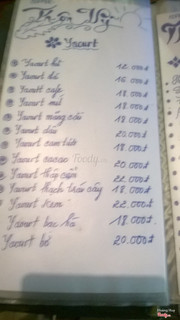 Yaourt
Yaourt hũ 12.000đ
Yaourt đá 16.000đ
Yaourt cafe 18.000đ
Yaourt mít 18.000đ
Yaourt mãng cầu 18.000đ
Yaourt dâu 20.000đ
Yaourt cam tươi 18.000đ
Yaourt cacao 20.000đ
Yaourt thập cẩm 22.000đ
Yaourt thạch trái cây 18.000đ
Yaourt kem 22.000đ
Yaourt bạc hà 18.000đ
Yaourt bơ 20.000đ